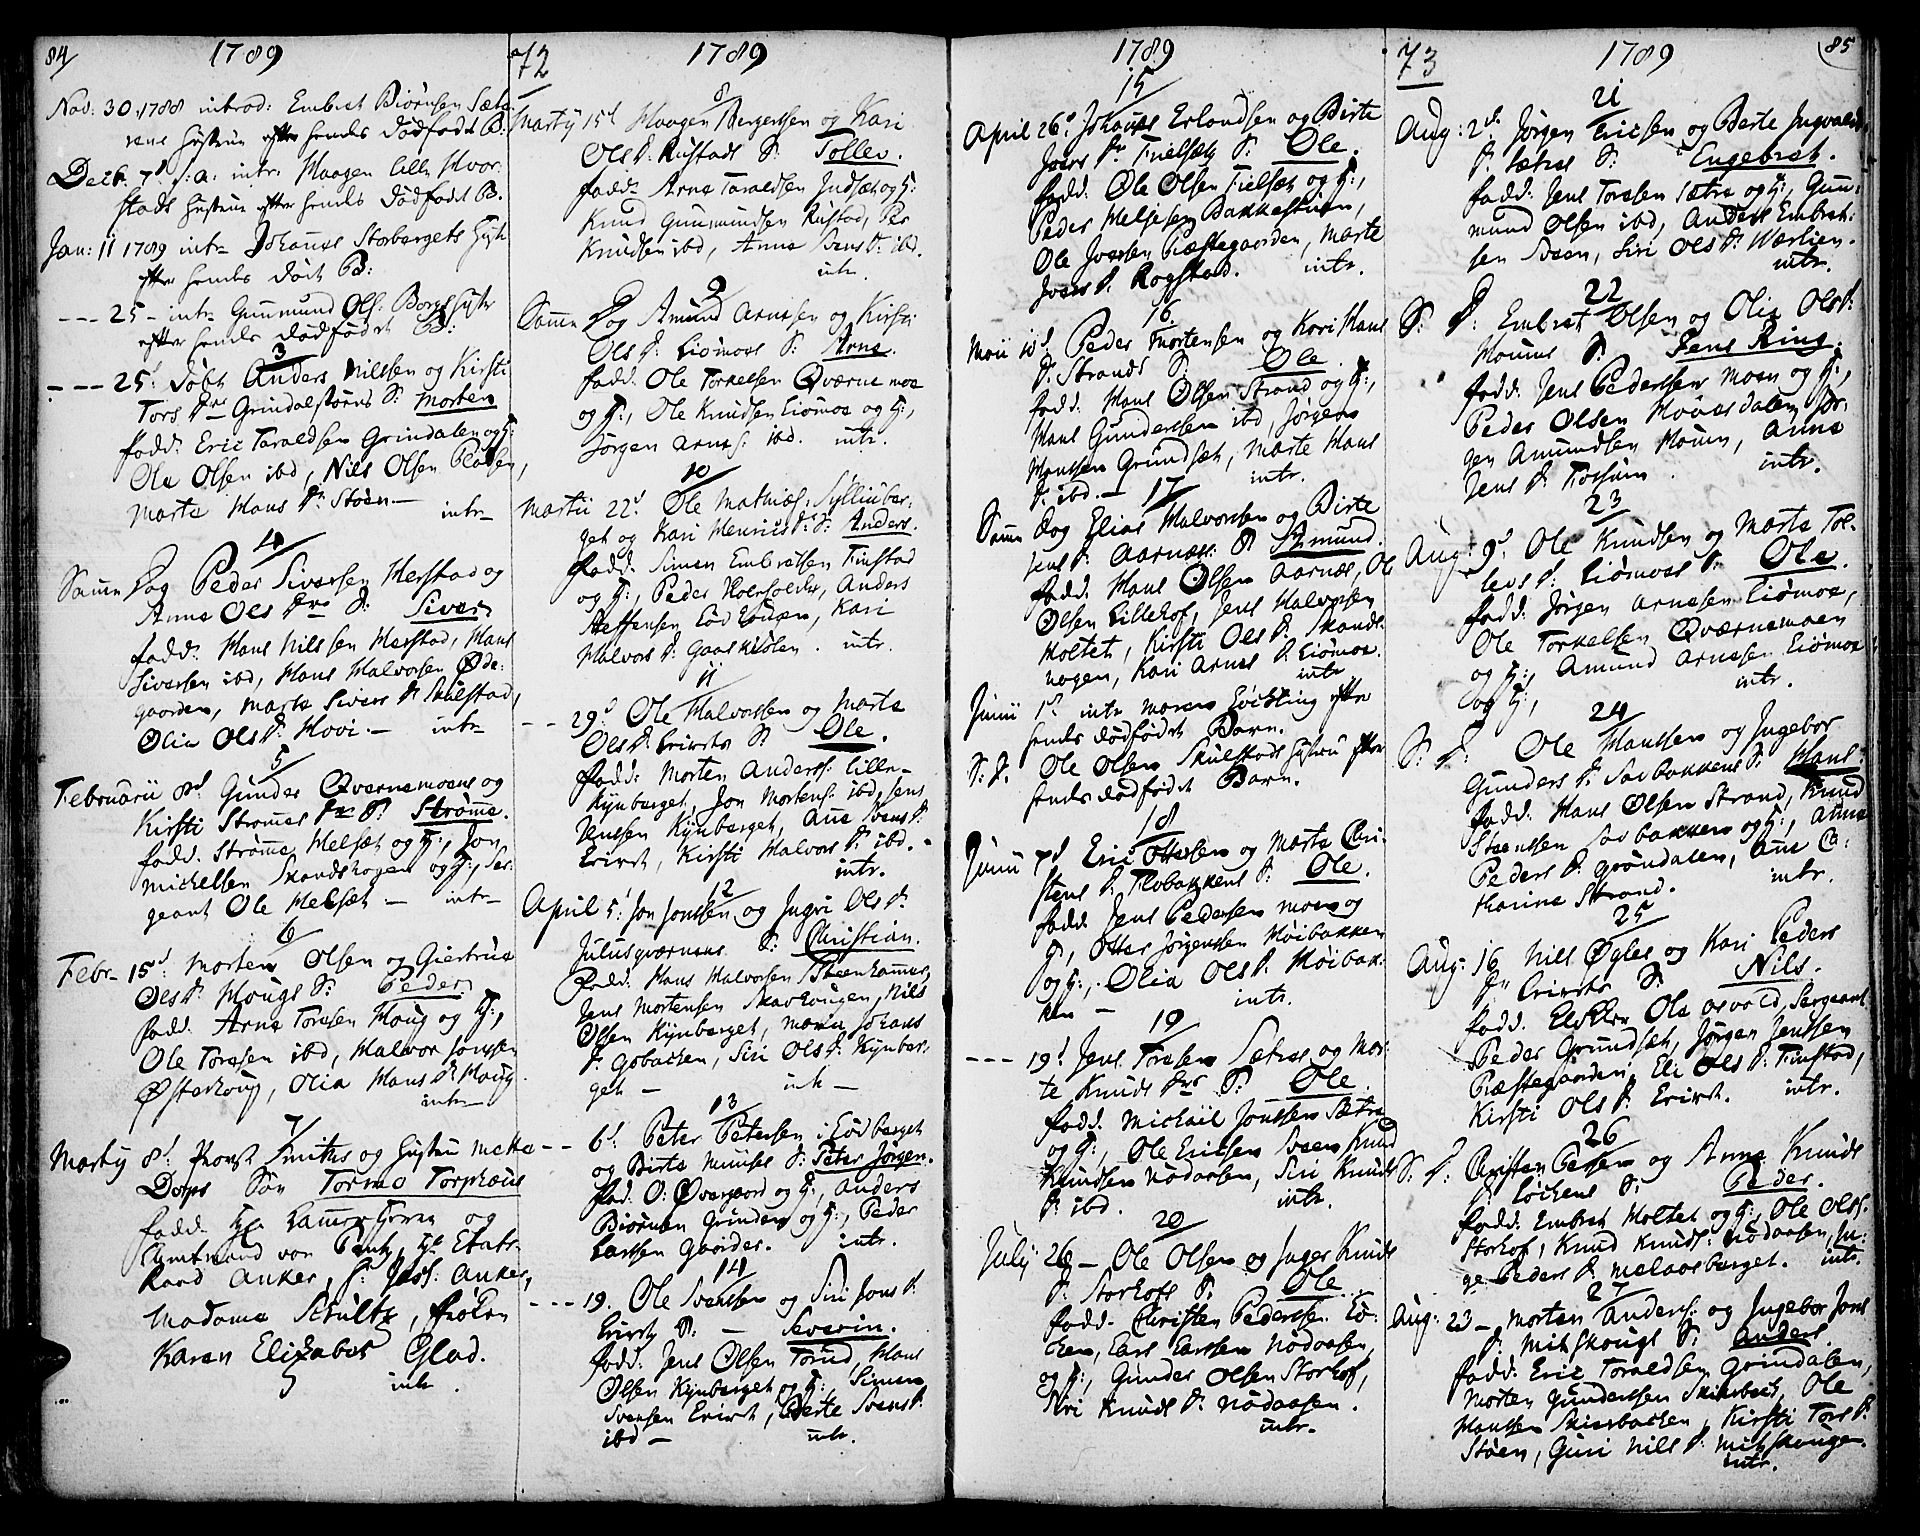 84
1789
Nov: 30. 1788 introd: Embret Biørnsen Sæte
rens Hustrue efter hendes dødfødt B.
Decb. 7d s: a: intr: Haagen Lille Hvor
stads Hustrue efter hendes dødfødt B.
Jan: 11 1789 intr Johannes Storbergets Hustr
efter hendes dødt B:
--- 25 - intr Gunmund Ols: Borgs Hustr
efter hendes dødfødt B:
3
--- 25d døbt Anders Nilssen og Kirsti
Tors Dr Grindalstøens S: Morten
fadd: Eric Taraldsen Grindalen og H:
Ole Olsen ibd, Nils Olsen Pladsen,
Marte Hans Dr Støen - intr
4
Samme Dag Peder Siversen Herstad og
Anne Ols Drs S: Siver
fadd: Hans Nilssen Herstad, Hans
Siversen ibd, Hans Halvorsen Øde-
gaarden, Marte Sivers Dr Skulstad,
Olia Ols Dr Hovi - intr
5
Februarii 8d Gunder Qvernemoens og
Kirsti Strømes Drs S: Strømme.
fadd. Strøme Helset og H:, Jon
Michelsen Skandshagen og H:, Ser-
geant Ole Helset - intr
6
Febr 15d Morten Olsen og Giertrue
Ols Dr Hougs S: Peder
fadd: Arne Toresen Houg og H:,
Ole Toresen ibd, Halvor Jonssen
Østerhoug, Olia Hans Dr Houg
intr
7
Marty 8d: Provst Smiths og Hustru Mette
Dorps Søn Tormo Torphæus
fadd. Hr Cammerherre og
Amtmand von Pentz, Hr Etats-
Raad Anker, H: Jess: Anker,
Madame Schultz, Frøken
Karen Elizabet Glad.
intr.
72
1789
8
Marty 15d Haagen Bergersen og Kari
Ols Dr Rustads S: Tollev.
fadd: Arne Taraldsen Indset og H:
Knud Gunmundsen Rustad, Per
Knudsen ibd, Anne Svens Dr ibd.
intr.
9
Samme Dag Amund Arnesen og Kirsti
Ols Dr Liømoes S: Arne.
fadd: Ole Torkelsen Qværnemoe
og H:, Ole Knudsen Liømoe og H:,
Jørgen Arnes: ibd. intr.
10
Martii 22d Ole Mathias: Sylliuber
get og Kari Henrics Dr S: Anders.
fadd. Simen Embretsen Tinstad
og H:, Peder Holersolvedr, Anders
Steffensen Løvhougen, Kari
Halvors Dr Gaaskiølen. intr.
11
-- 29d Ole Halvorsen og Marte
Ols Dr Erirets S: Ole.
fadd: Morten Anders: Lille-
Kynberget, Jon Mortens: ibd, Jens
Jenssen Kynberget, Ane Svens Dr
Erirst, Kirsti Halvors Dr ibd.
intr.
12
April 5d: Jon Jonssen og Ingri Ols Dr
Julusqværnens S: Christian.
fadd. Hans Halvorsen Steenkammer,
Jens Mortensen Skavhougen, Nils
Olsen Kynberget, Maria Johans
Dr Gobacken, Siri Ols Dr Kynber-
get - intr -
13
-- 6d: Peter Petersen i Lødberget
og Birte Muuses S: Peter Jørgen.
fad. O: Øvergaard og H:, Anders
Biørnsen Grinden og H:, Peder
Larssen Gaarder. intr.
14
--- 19. Ole Svenssen og Siri Jons Dr
Erirst S: - Severin.
fadd. Jens Olsen Torud, Hans
Olsen Kynberget og H:, Simen
Svensen Erirst, Berte Svens Dr
ibd - intr.
1789
15
April 26d Johannes Erlandsen og Birte
Jvers Dr Tielset S: Ole.
fadd. Ole Olsen Tielset og H:,
Peder Helgesen Bakkestuen,
Ole Jversen Præstegaarden, Marte
Jvers Dr Rogstad. intr.
16
Maii 10d. Peder Mortensen og Kari Hans
Dr Strands S: Ole
fadd. Hans Olsen Strand og H:,
Hans Gundersen ibd, Jørgen
Hanssen Grundset, Marte Hans
Dr ibd. - intr.
17
Samme dag Elias Halvorsen og Birte
Jens Dr Aarnæs: S: Amund.
fadd. Hans Olsen Aarnæs, Ole
Olsen Lillehof, Jens Halvorsen
Holtet, Kirsti Ols Dr Skands-
hagen, Kari Arnes Dr Liømoe.
intr
Junii 1d intr Maren Løvliing efter
hendes dødfødt Barn.
S: D. Ole Olsen Skulstads Hustru efter
hendes dødfødt Barn.
18
Junii 7d Eric Ottersen og Marte Chri-
stens Dr Flobakkens S: Ole.
fadd: Jens Pedersen Moen og
H:, Otter Jørgenssen Høibakken
og H:, Olia Ols Dr Høibak-
ken - intr.
19
--- 19d. Jens Toresen Sætres og Mar-
te Knuds Drs S: Ole.
fadd. Michail Jonssen Sætre
og H:, Ole Ericsen Svean, Knud
Knudsen Nødaasen, Siri Knuds
Dr ibd. intr.
20
July 26 - Ole Olsen og Inger Knuds
Dr Storhofs S: Ole
fadd. Christen Pedersen Lø-
ken, Lars Larssen Nødaasen,
og H:, Gunder Olsen Storhof,
Siri Knuds Dr Nødaasen.
intr.
73
1789
85
21
Aug: 2d Jørgen Ericsen og Berte Ingvalds
Dr Sætres S: Engebret.
fadd: Jens Toresen Sætre og H:, Gun-
mund Olsen ibd, Anders Embret-
sen Svean, Siri Ols Dr Wærlien.
intr.
22
S: D: Embret Olsen og Olia Ols Dr
Mouns S: Jens Ring.
fadd: Jens Pedersen Moen og H:,
Peder Olsen Hovesdalen, Jør-
gen Amundsen Moun, Anne
Jens Dr Tossum. intr.
23
Aug: 9d Ole Knudsen og Marte Tol-
levs Dr Liømoes S: Ole.
fadd: Jørgen Arnesen Liømoe,
Ole Torkelsen Qværnemoen
og H:, Amund Arnesen Liømoe
og H:, intr.
24
S: D: Ole Hanssen og Ingebor
Gunders Dr Savbakkens S: Hans
fadd. Hans Olsen Strand, Knud
Steenssen Savbakken og H:, Anne
Peders Dr Grøndalen, Ane Ca-
tharina Strand. intr.
25
Aug: 16 Nils Øgles og Kari Peders
Dr Erirsts S: Nils.
fadd: Ole Osvold, Sergeant
Peder Grundset, Jørgen Jenssen
Præstegaarden, Eli Ols Dr Tinstad,
Kirsti Ols Dr Erirst. intr.
26
S: D: Christen Persen og Anne Knuds
Dr Løckens S: Peder.
fadd: Embret Holtet og H:, Ole Ols:
Storhof, Knud Knuds: Nødaasen, In-
ge Peders Dr Melaasberget. intr.
27
Aug: 23 - Morten Anders: og Ingebor Jons
Dr Mitskougs S: Anders.
fadd: Eric Toraldsen Grindalen,
Morten Gundersen Skierbeck, Ole
Hanssen Skierbacken, Kirsti Tors Dr
Støen, Guri Nils Dr Mitskougen.
intr.